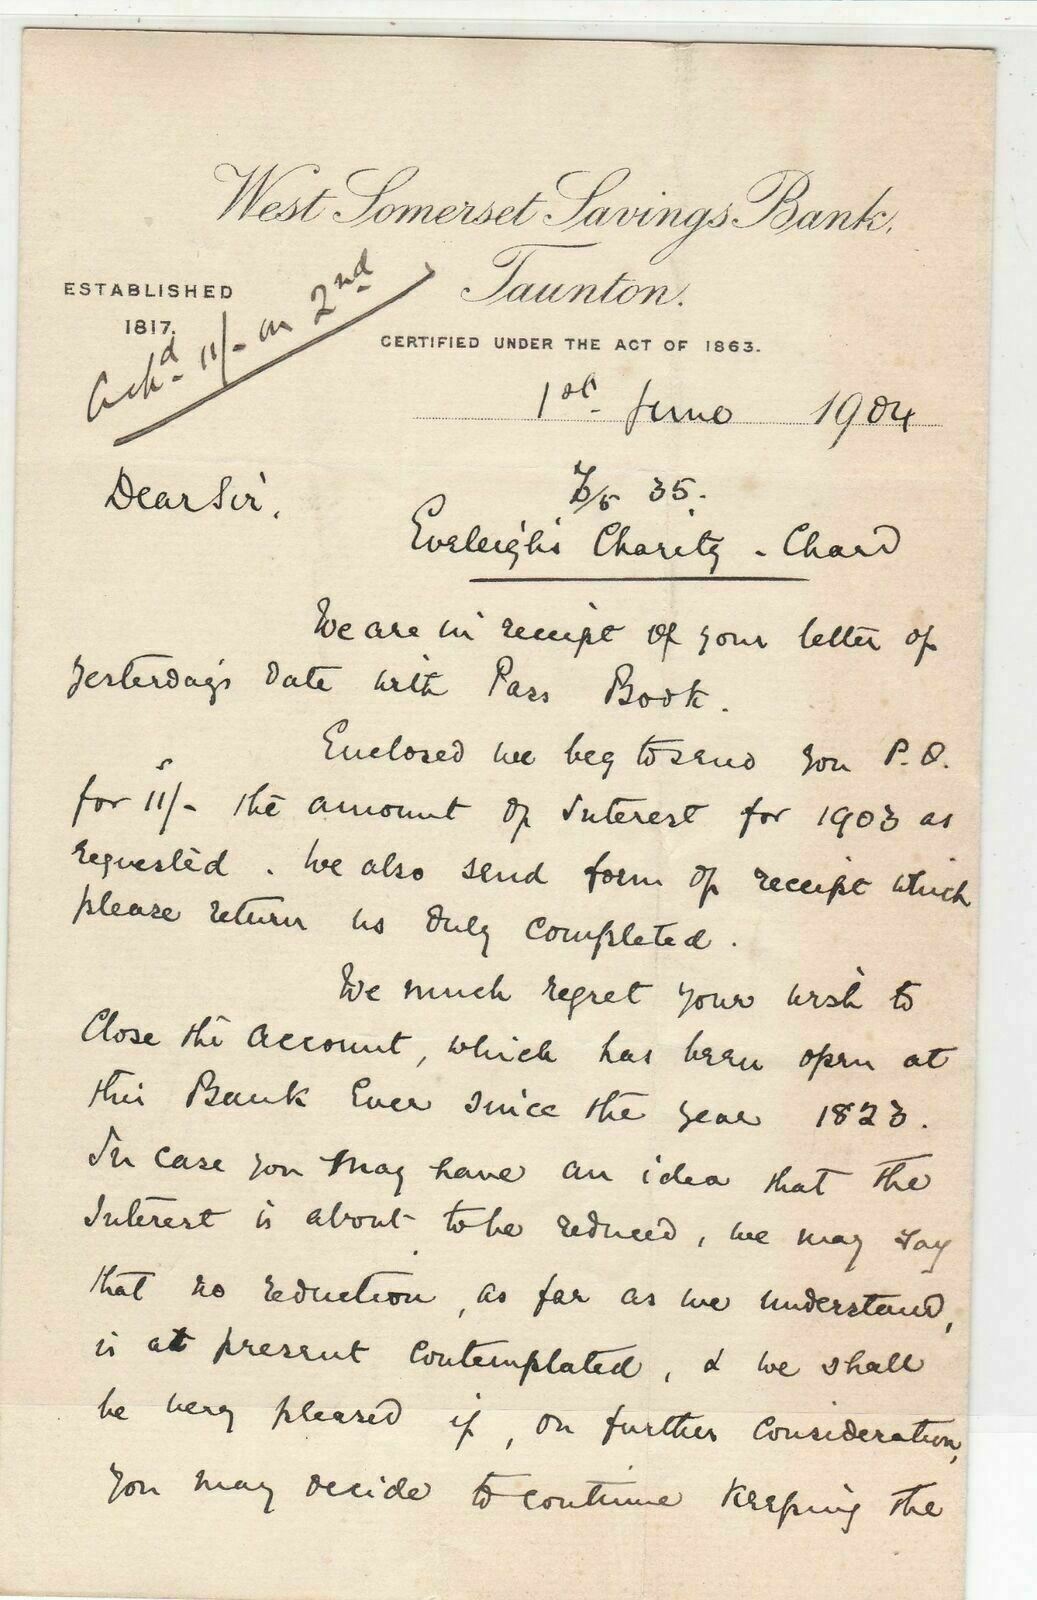 West Somerset Savings Bank,
Taunton.
ESTABLISHED
1817.
CERTIFIED UNDER THE ACT OF 1863.
Ackd 11/- on 2nd
1st June 1904
Dear Sir,
35.
Eveleigh's Charity - Chard
We are in receipt of your letter of
yesterday's date with Pass Book.
Enclosed we beg to send you P.O.
for 11/- the amount of Interest for 1903 as
requested. We also send form of receipt which
please return us duly completed.
We much regret your wish to
close the account, which has been open at
this Bank ever since the year 1823.
In case you may have an idea that the
Interest is about to be reduced, we may say
that no reduction, as far as we understand,
is at present contemplated, & we shall
be very pleased if, on further consideration,
you may decide to continue keeping the